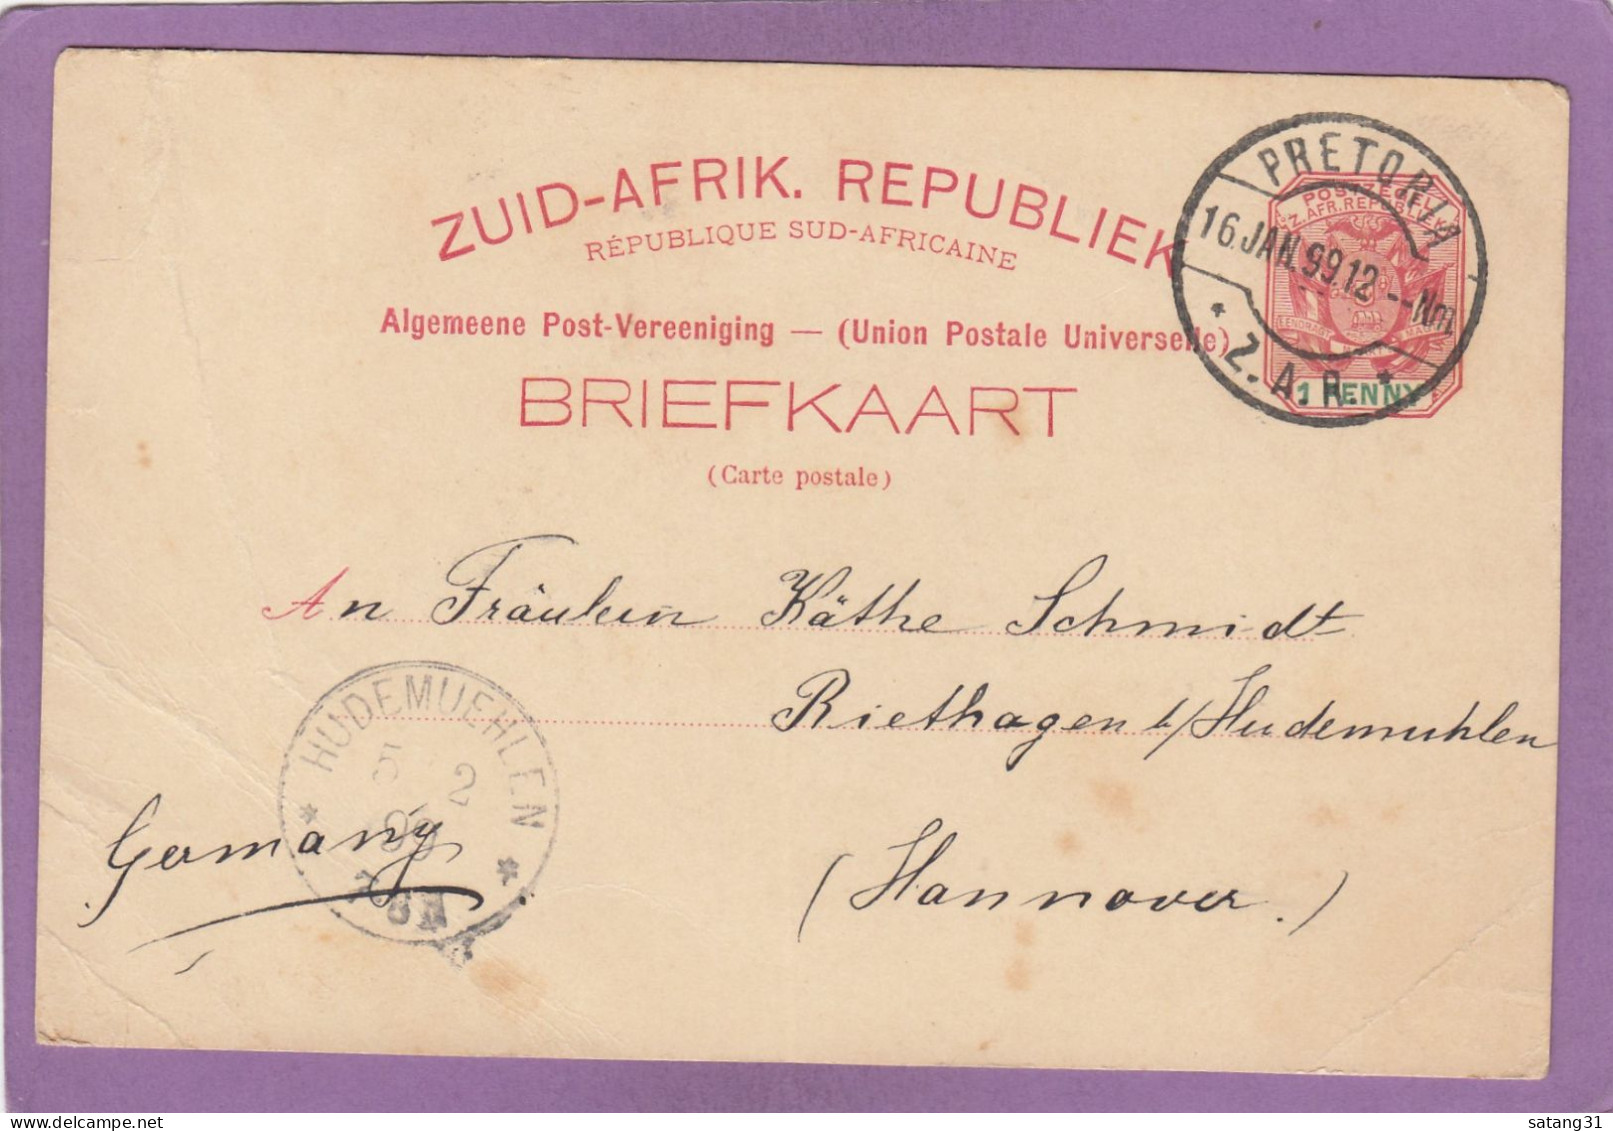 ZUID-AFRIK. REPUBLIEK
RÉPUBLIQUE SUD-AFRICAINE
Algemeene Post-Vereeniging — (Union Postale Universelle)
BRIEFKAART
(Carte postale)
PRETORIA
16.JAN.99.12--Nm.
* Z.A.R. *
POSTZEGEL
Z. AFR. REPUBLIEK
EENDRAGT MAAKT MAGT
1 PENNY
An Fräulein Käthe Schmidt
Riethagen b/Hudemuhlen
(Hannover.)
Germany
* HUDEMUEHLEN *
5 2
99
satang31